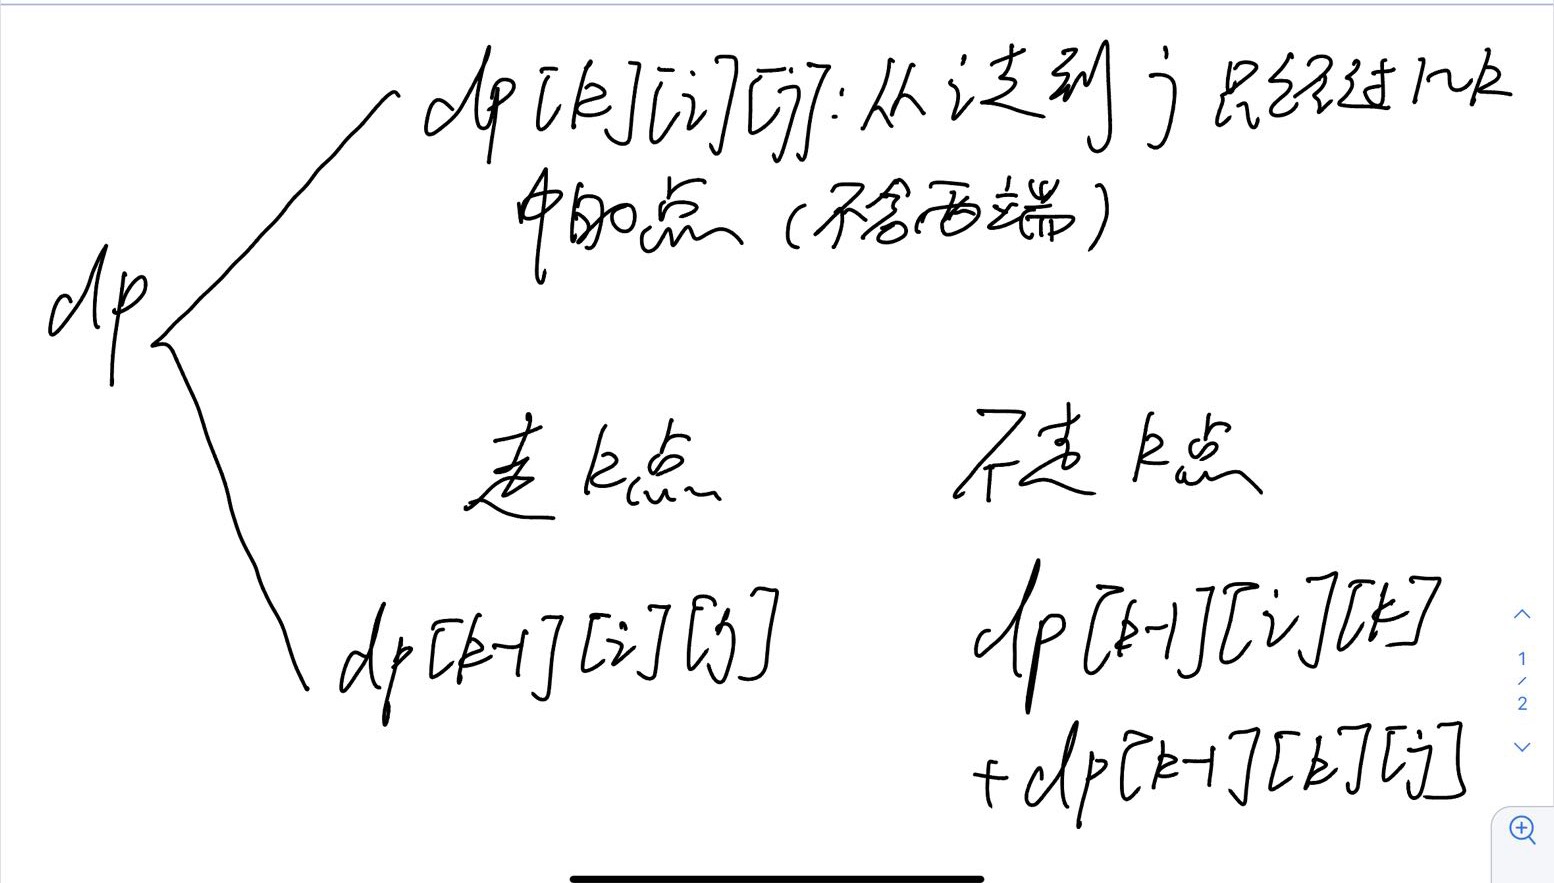 dp[k][i][j]:从i走到j只经过1~k
中的点(不含两端)
dp
走k点 不走k点
dp[k-1][i][j] dp[k-1][i][k]
+dp[k-1][k][j]
1
/
2